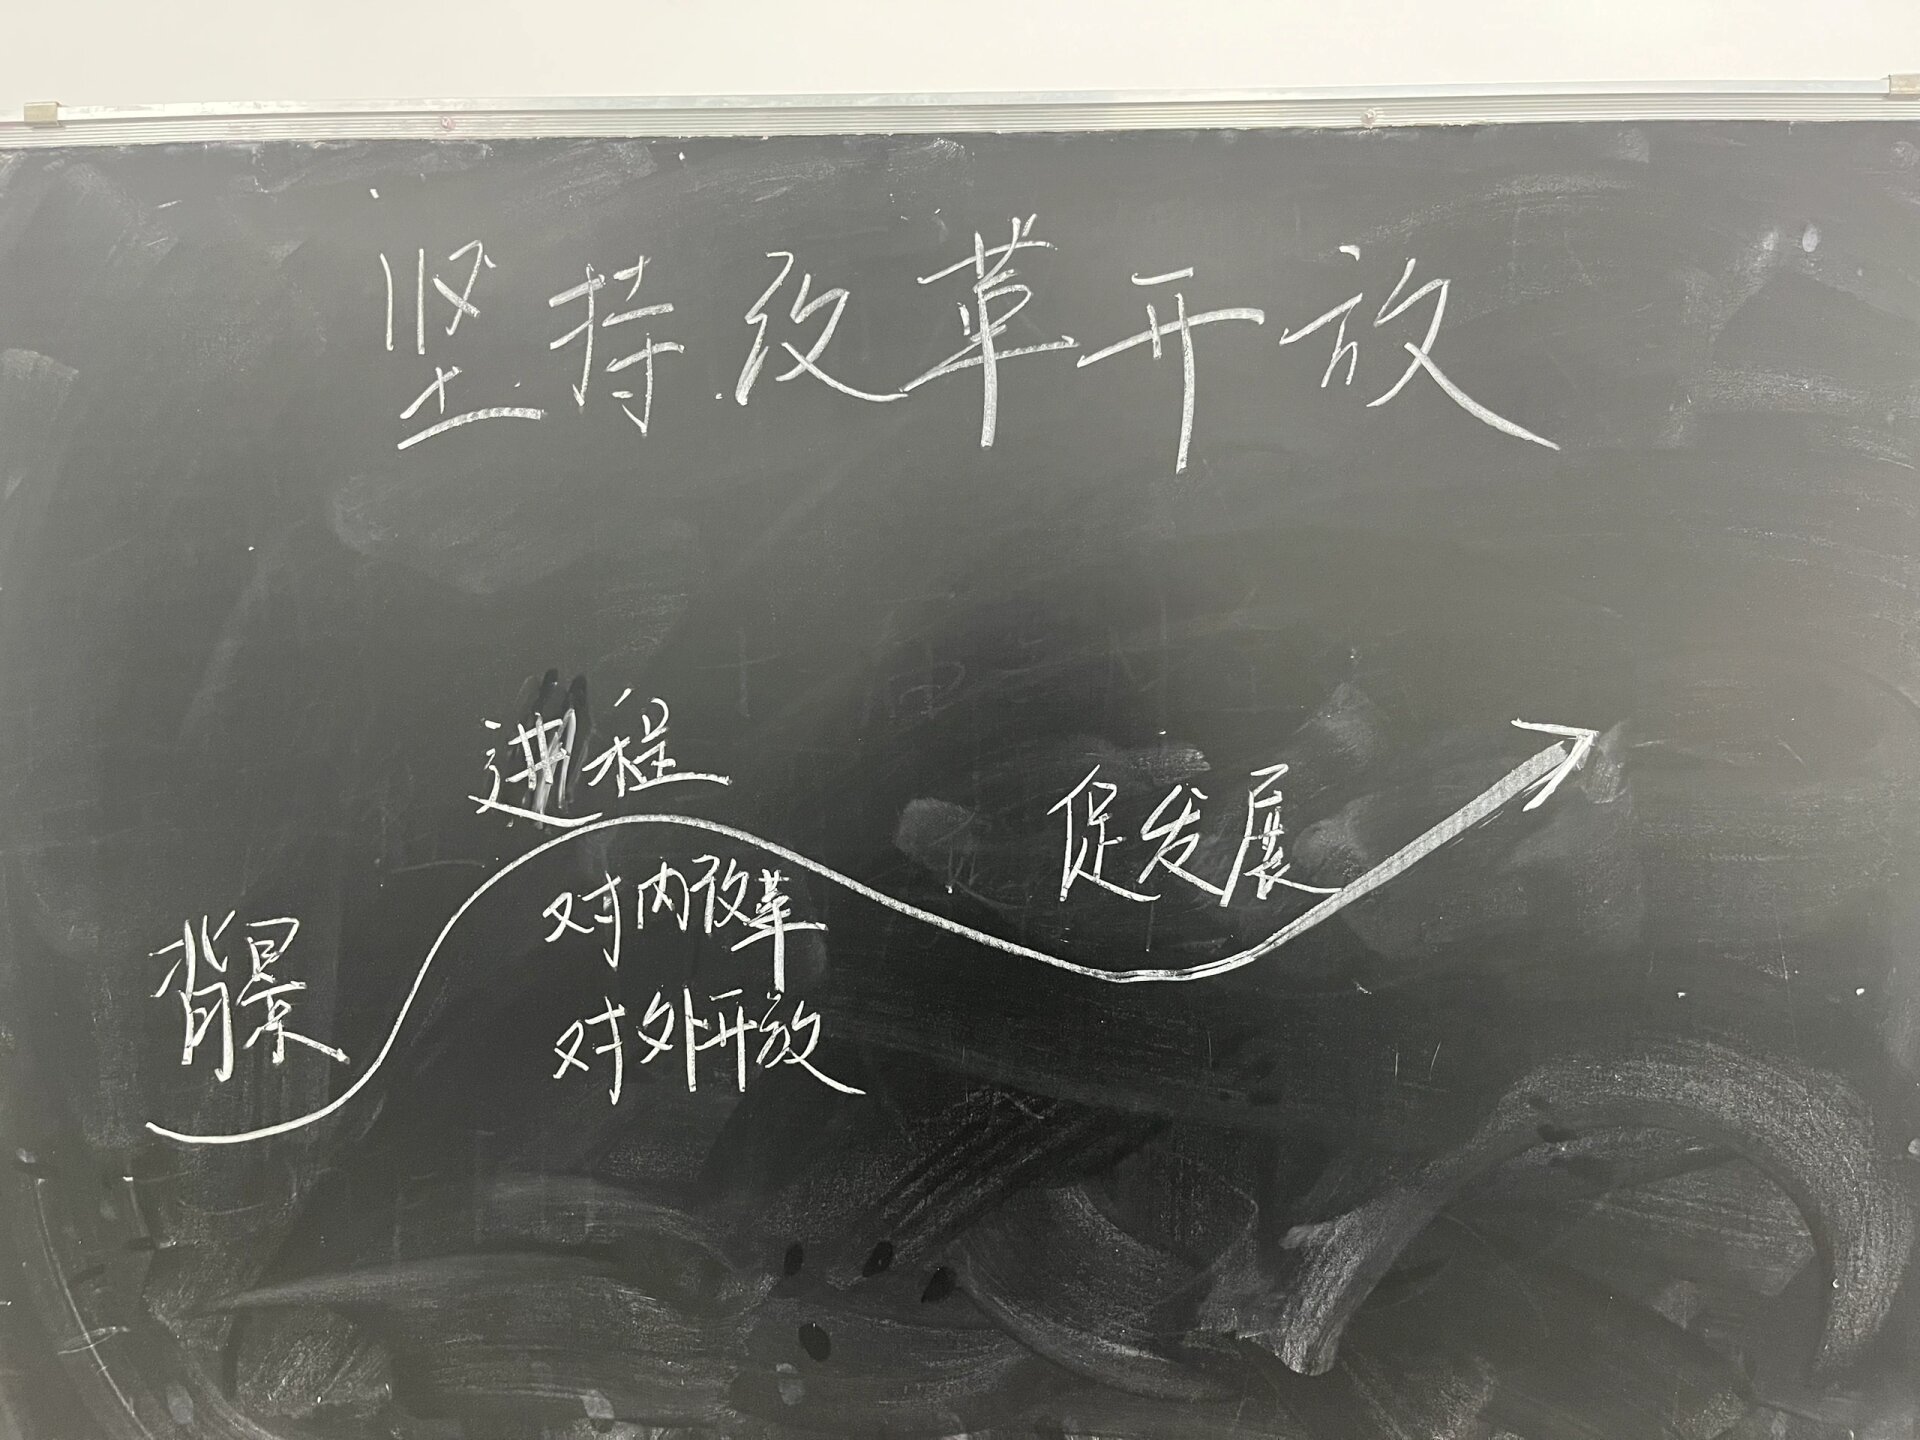 坚持改革开放
进程
促发展
对内改革
背景
对外开放